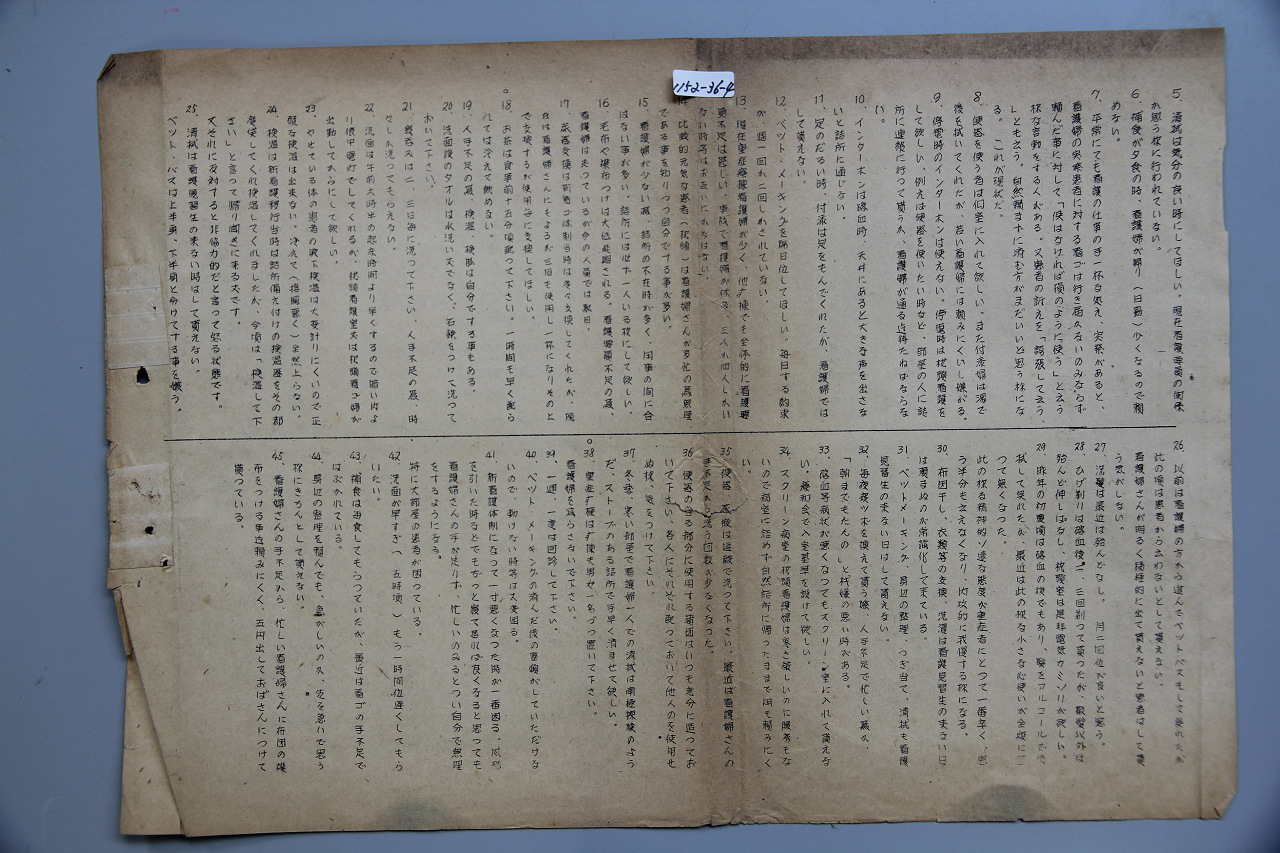 1152-36-4
5. 清拭は気分の良い時にしてほしい。現在看護要員の関係
か思う様に行われていない。
6. 補食が夕食の時、看護婦が帰り(日勤)少くなるので頼
めない。
7. 平常にても看護の仕事の手一杯な処え、突発があると、
看護婦の突発患者に対する看ゴは行き届かないのみならず
頼んだ事に対して「使はなければ損のように使う」と云う
様な言動をする人がある。又患者の訴えを「誇張して云う
しとも云う。自然頼まずに済む方がまだいいと思う様にな
る。これが現状だ。
8. 便器を使う為は個室に入れて欲しい。また付添婦は湯で
後を拭いてくれたが、若い看護婦には頼みにくいし嫌がる。
9. 停電時のインターホンは使えない。停電時は枕頭看護を
して欲しい。例えば便器を使いたい時など、部屋の人に詰
所に連絡に行って貰うか、看護婦が通る迄待たねばならな
い。
10. インターホンは喀血時、天井にあると大きな声を出さな
いと詰所に通じない。
11. 足のだるい時、付添は足をもんでくれたが、看護婦では
して貰えない。
12. ベット・メーキングを隔日位してほしい。毎日する約束
が、週一回か二回しかされていない。
13. 現在重症病棟看護婦が少く、他病棟でも全体的に看護要
員不足は甚しい。事故で看護婦が休み、三人か四人しかい
ない時等はお互いにかなはない。
14. 比較的元気な患者(枕頭)は看護婦さんが多忙の為無理
である事を知りつつ自分でする事が多い。
15. 看護婦が少ない為、詰所の不在時が多く、用事の間に合
はない事が多い。詰所には必ず一人いる様にして欲しい。
16. 毛布や標布つけは大低延期される。看護要員不足の為、
看護婦は走っているが今の人員では駄目。
17. 尿器交換は前看ゴ体制当時は度々交換してくれたが、現
在は看護婦さんにもよるが三回も使用し一杯になりその上
で交換するが使用毎に交換してほしい。
18. お茶は食事前十五分頃配って下さい。一時間も早く配ら
れては冷えて飲めない。
19. 人手不足の為、検温、検脈は自分でする事もある。
20. 洗面後のタオルは水洗い丈でなく、石鹸をつけて洗って
おいて下さい。
21. 寝呑みは二、三日毎に洗って下さい、人手不足の為、時
々しか洗ってもらえない。
22. 洗面は午前六時半の起床時間より早くするので暗い内よ
り懐中電灯でしてくれるが、枕頭看護室丈は枕頭看ゴ婦が
出勤してからにして欲しい。
23. やせている体の患者の腋下検温は大変計りにくいので正
確な検温は出来ない。冷えて(格間悪く)全然上らない。
24. 検温は新看護移行当時は詰所備え付けの検温器をその都
度渡してくれ検温してくれましたが、今頃は「検温して下
さい」と言って帰り聞きに来る丈です。
又それに反対すると非協力的だと言って怒る状態です。
25. 清拭は看護学習生の来ない時はして貰えない。
ベット・バスは上半身、下半身と分けてする事を嫌う。
26. 以前は看護婦の方から進んでベットバスもして呉れたが
此の頃は患者から云わないとして貰えない。
看護婦さんが明るく積極的に出て貰えないと患者はして貰
う気がしない。
27. 洗髪は最近は殆んどなし。月二回位が良いと思う。
28. ひげ剃りは喀血後二、三回剃って貰ったが、散髪以外は
殆んど伸しぱなし、枕頭室は是非電気カミソリが欲しい。
29. 昨年の初夏頃は喀血の後でもあり、髪をアルコールでで
拭して呉れたが、最近は此の様な小さな心使いが全般に亘
って無くなった。
此の様な精神的ソ遠な態度が重症者にとって一番辛く、思
う半分も云えなくなり、肉攻的に我慢する様になる。
30. 布団干し、衣類等の交換、洗濯は看護見習生の来ない日
は頼まぬのが常識化して来ている。
31. ベットメーキング、身辺の整理、つぎ当て、清拭も看護
見習生の来ない日はして貰えない。
32. 毎夜マツ木を換えて貰う際、人手不足で忙しい為か、
「朝までもたんの」と機嫌の悪い時がある。
33. 喀血等病状が悪くなってもスクリーン室に入れて貰えな
い。緩和会で入室基準を設けて欲しい。
34. スクリーン病室の枕頭看護婦は寒さ厳しいのに暖房もな
いので病室に詰めず自然詰所に帰ったままで用も頼みにく
い。
35. 便器、尿瓶は追毀で洗って下さい。最近は看護婦さんの
手不足から洗う回数が少なくなった。
36. 便器の当る部分に使用する布団はいつも充分に造ってお
いて下さい。各人にそれぞれ配っておいて他人のを使用せ
ぬ様、気をつけて下さい。
37. 冬季、寒い部屋で看護婦一人での清拭は南極探検のよう
だ、ストーブのある詰所で手早く済ませて欲しい。
38. 重症病棟は病使夫男女一名づつ置いて下さい。
看護婦を減らさないで下さい。
39. 一週、一度は回診して下さい。
40. ベット・メーキングの済んだ後の整頓がしていただけな
いので、動けない時等は大変困る。
41. 新看護体制になって一寸悪くなった時が一番困る。風邪
を引いた時などでもちょっと寝て居れば良くなると思っても
看護婦さんの手が足りず、忙しいのみるとつい自分で無理
をするようになる。
特に大部屋の患者が困っている。
42. 洗面が早すぎ(五時頃)もう一時間位遅くしてもら
いたい。
43. 補食は毎食してもらっていたが、最近は看ゴの手不足で
はぶかれている。
44. 身辺の整理を頼んでも、急がしいのか、先を急いで思う
様にきちんとして貰えない。
45. 看護婦さんの手不足から、忙しい看護婦さんに布団の標
布をつける事迄頼みにくく、五円出しておばさんにつけて
貰っている。